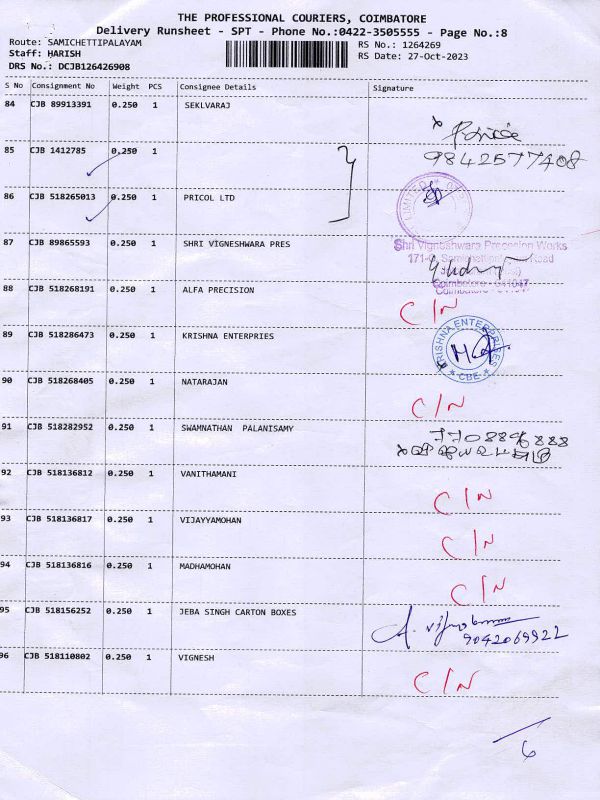 THE PROFESSIONAL COURIERS, COIMBATORE
Delivery Runsheet - SPT - Phone No.:0422-3505555 - Page No.:8
Route: SAMICHETTIPALAYAM RS No.: 1264269
Staff: HARISH RS Date: 27-Oct-2023
DRS No.: DCJB126426908
S No Consignment No Weight PCS Consignee Details Signature
84 CJB 89913391 0.250 1 SEKLVARAJ
9842577408
85 CJB 1412785 0.250 1
86 CJB 518265013 0.250 1 PRICOL LTD
LIMITED
87 CJB 89865593 0.250 1 SHRI VIGNESHWARA PRES
Shri Vigneshwara Precision Works
88 CJB 518268191 0.250 1 ALFA PRECISION
Coimbatore - 641047
C/N
89 CJB 518286473 0.250 1 KRISHNA ENTERPRIES
KRISHNA ENTERPRISES
* CBE *
90 CJB 518268405 0.250 1 NATARAJAN
C/N
91 CJB 518282952 0.250 1 SWAMNATHAN PALANISAMY
7708896888
92 CJB 518136812 0.250 1 VANITHAMANI
C/N
93 CJB 518136817 0.250 1 VIJAYYAMOHAN
C/N
94 CJB 518136816 0.250 1 MADHAMOHAN
C/N
95 CJB 518156252 0.250 1 JEBA SINGH CARTON BOXES
9042069922
96 CJB 518110802 0.250 1 VIGNESH
C/N
6